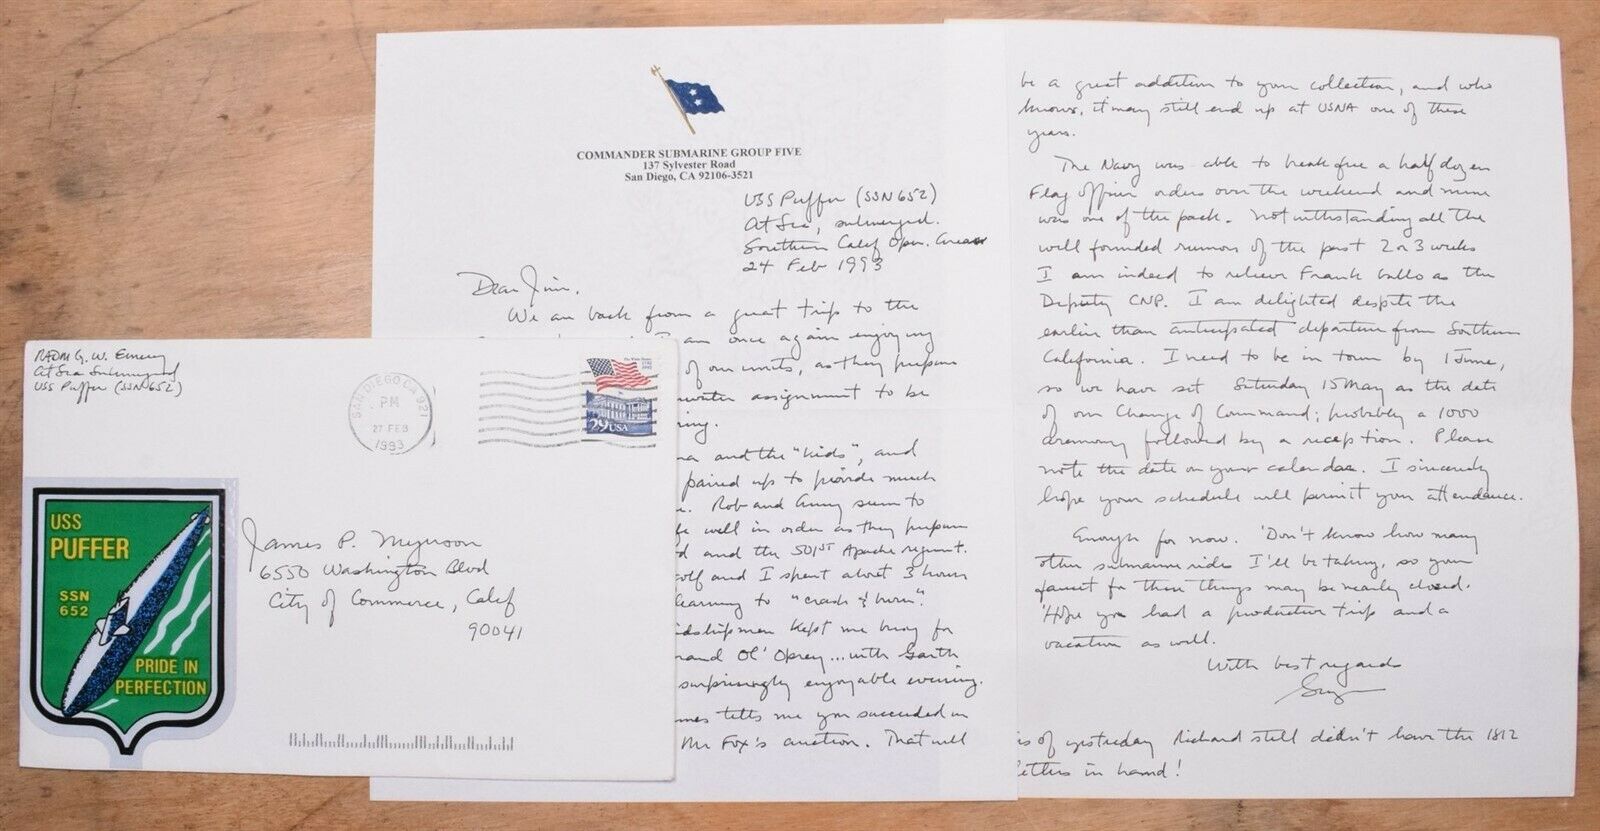 RADM G. W. Emery
At Sea Submerged
USS Puffer (SSN 652)
SAN DIEGO CA 921
PM
27 FEB
1993
The White House
1792 1992
29 USA
USS
PUFFER
SSN
652
PRIDE IN
PERFECTION
James P. Myerson
6550 Washington Blvd
City of Commerce, Calif
90041
COMMANDER SUBMARINE GROUP FIVE
137 Sylvester Road
San Diego, CA 92106-3521
USS Puffer (SSN 652)
At Sea, submerged.
Southern Calif Oper. Areas
24 Feb 1993
Dear Jim,
We are back from a great trip to the
am once again enjoying
of our units, as they prepare
assignment to be
ring.
and the "kids", and
paired up to provide much
Rob and Anny seem to
be well in order as they prepare
and the 501ST Apache regiment.
and I spent about 3 hours
learning to "crash & burn".
idshipmen kept me busy for
rand Ol' Oprey... with Garth
surprisingly enjoyable evening.
mes tells me you succeeded in
Mr Fox's auction. That will
be a great addition to your collection, and who
knows, it may still end up at USNA one of these
years.
The Navy was able to break free a half dozen
Flag Officer orders over the weekend and mine
was one of the pack. Notwithstanding all the
well founded rumors of the past 2 or 3 weeks
I am indeed to relieve Frank Gallo as the
Deputy CNP. I am delighted despite the
earlier than anticipated departure from Southern
California. I need to be in town by 1 June,
so we have set Saturday 15 May as the date
of our Change of Command; probably a 1000
ceremony followed by a reception. Please
note the date on your calendar. I sincerely
hope your schedule will permit your attendance.
Enough for now. 'Don't know how many
other submarine rides I'll be taking, so your
faucet for these things may be nearly closed.
'Hope you had a productive trip and a
vacation as well.
With best regards
is of yesterday Richard still didn't have the 1812
letters in hand!